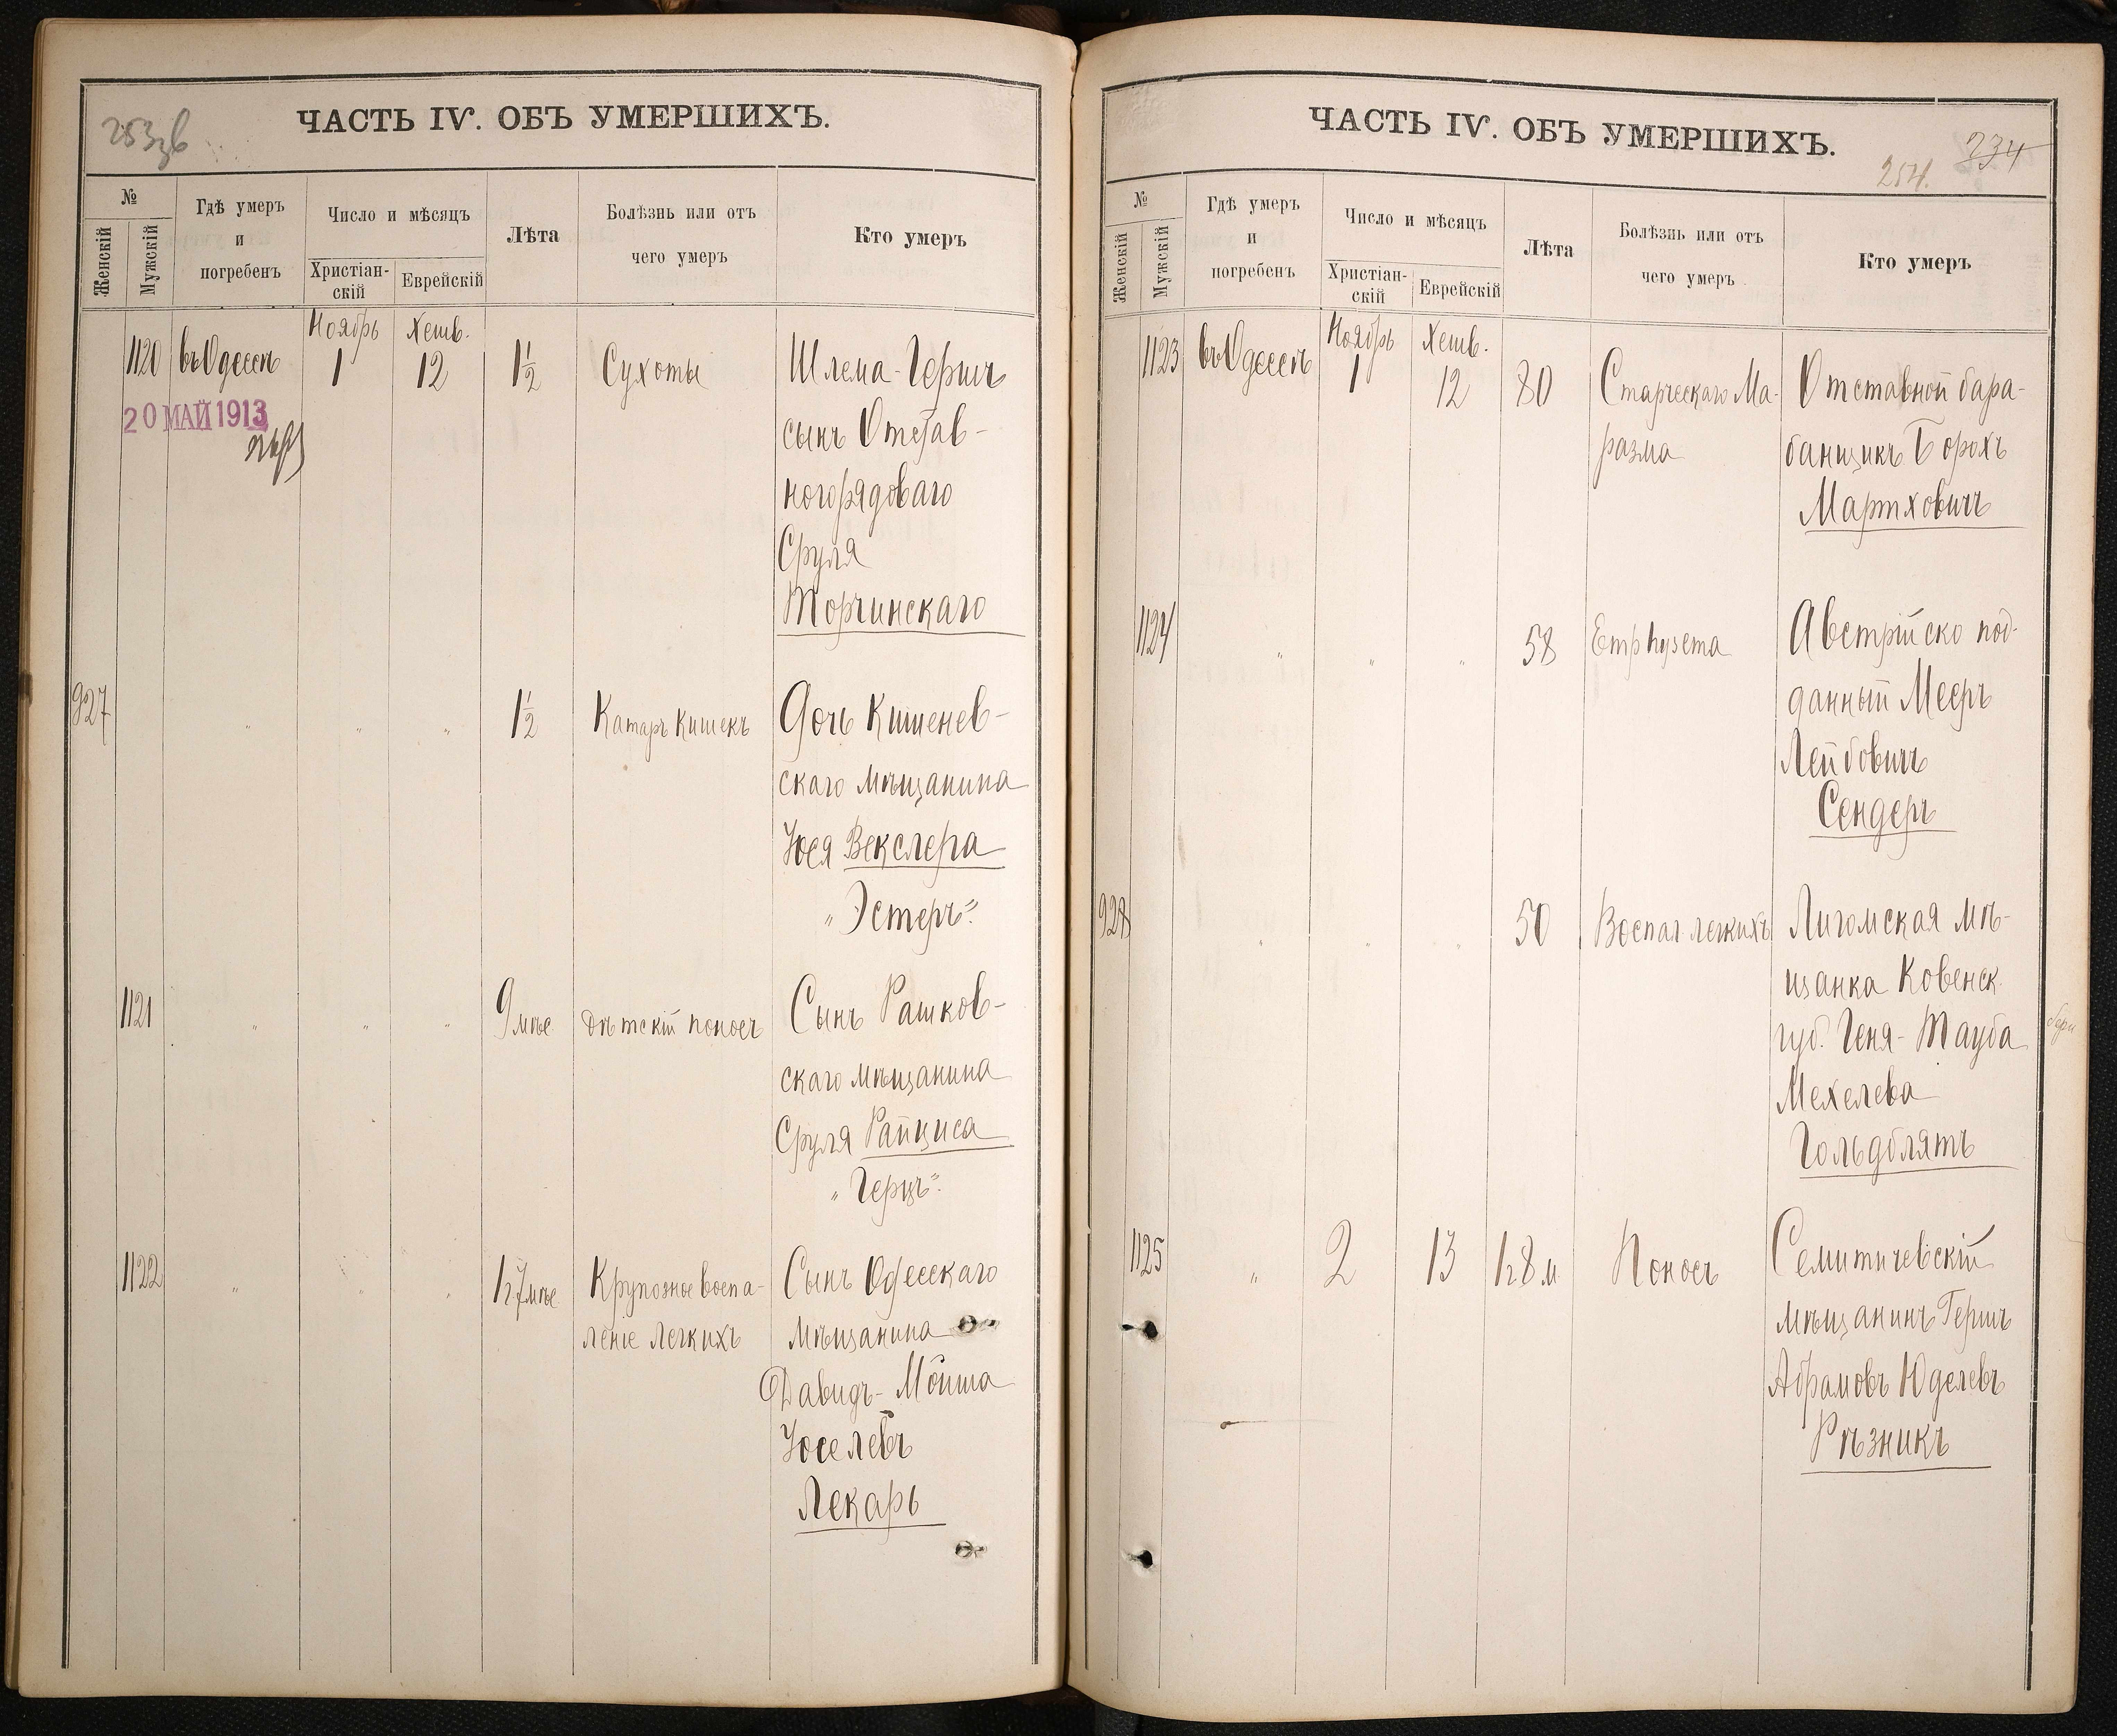 ЧАСТЬ IV. ОБЪ УМЕРШИХЪ.
№
Женскій
Мужскій
Гдѣ умеръ
и
погребенъ
Число и мѣсяцъ
Христіан-
скій
Еврейскій
Лѣта
Болѣзнь или отъ
чего умеръ
Кто умеръ
1120 въ Одессѣ Ноябрь 1 Хешв. 12 1½ Сухоты Шлема-Гершъ
20 МАЙ 1913
сынъ Отстав-
ного рядоваго
Сруля
Торчинскаго
927 " " " 1½ Катаръ Кишекъ Дочь Кишенев-
скаго мѣщанина
Іося Векслера
"Эстеръ".
1121 " " " 9 мѣс Дѣтскій поносъ Сынъ Рашков-
скаго мѣщанина
Сруля Райциса
"Герцъ".
1122 " " " 1 г 7 мѣс Крупозное воспа- Сынъ Одесскаго
леніе легкихъ мѣщанина
Давидъ-Мойша
Іоселевъ
Лекарь
ЧАСТЬ IV. ОБЪ УМЕРШИХЪ.
234
254.
№
Женскій
Мужскій
Гдѣ умеръ
и
погребенъ
Число и мѣсяцъ
Христіан-
скій
Еврейскій
Лѣта
Болѣзнь или отъ
чего умеръ
Кто умеръ
1123 въ Одессѣ Ноябрь 1 Хешв. 12 80 Старческаго Ма- Отставной бара-
разма банщикъ Борохъ
Мартховичъ
1124 " " " 58 Emphysema Австрійско под-
данный Мееръ
Лейбовичъ
Сендеръ
928 " " " 50 Воспал легкихъ Лигомская мѣ-
щанка Ковенск.
губ. Геня-Тауба
Мехелева
Гольдблятъ
1125 " 2 13 1 г 8 м Поносъ Семитичевскій
мѣщанинъ Гершъ
Абрамовъ Юделевъ
Рѣзникъ